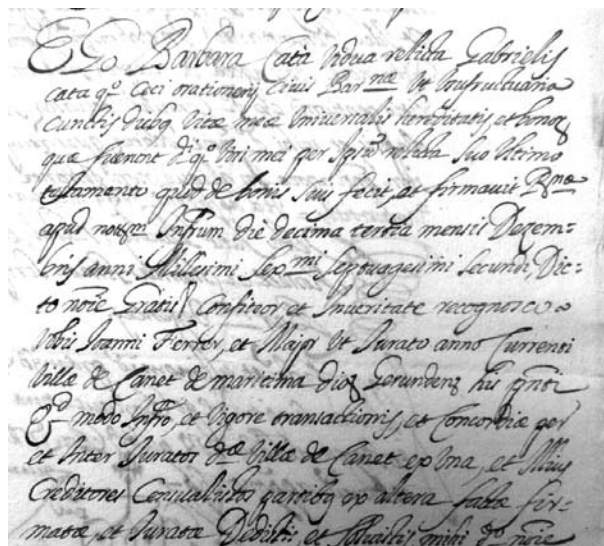 EGo Barbara Cata Vidua relicta Gabrielis
cata qº. Ceci orationerij Civis Barnæ Ut Usufructuaria
Cunctis diebq Vitæ meæ Universalis hereditatis, et bonoȝ
quæ fuerunt d. qº. Viri mei per ipsu relicta Suo Ultimo
testamento quod de bonis Suis fecit, et firmavit
apud not Infrum die decima tertia mensis Dezem=
bris anni Millesimi Sexmi Septuagesimi Secundi, Dic=
to noie Gratis Confiteor et Inveritate recognosco
Vobis Joanni Ferrer, et Major Ut Jurato anno Currenti
Villæ de Canet de maritima Gerundenȝ his
modo Infro, et Vigore transactionis, et Concordiæ per
et Inter Juratos dæ Villæ de Canet ex Una, et Illius
Creditores Censualistas partibq ex altera factæ fir=
matæ, et Juratæ Dedistis, et Solvistis mihi dº. noie